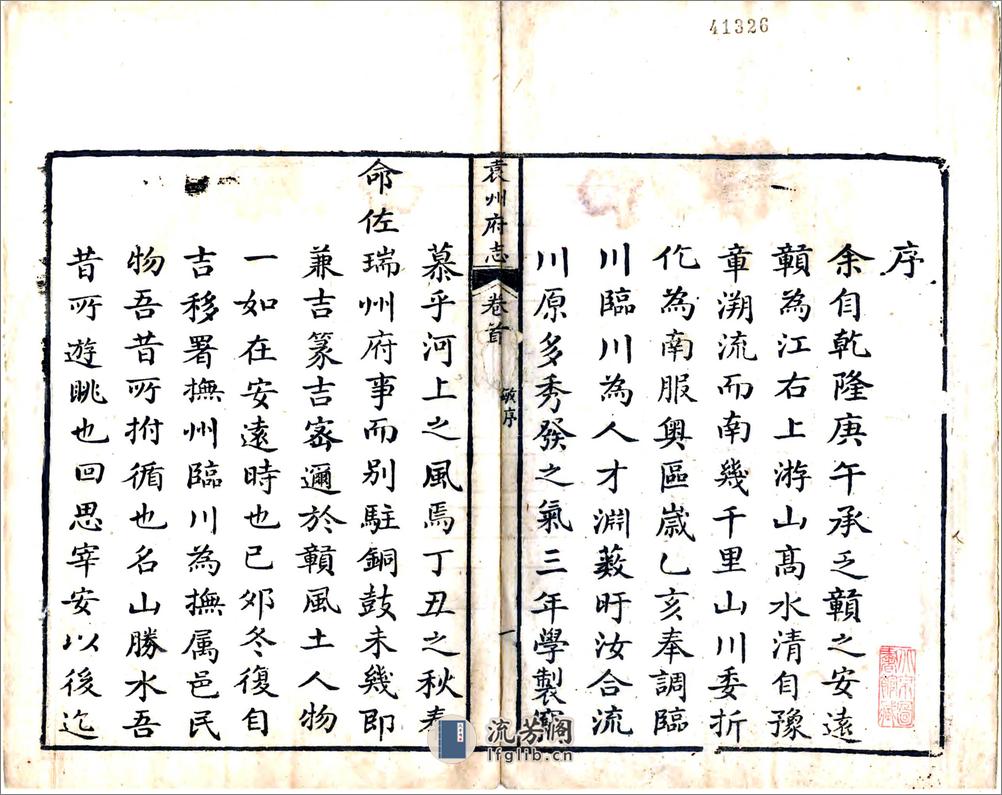 41326
序
余自乾隆庚午承乏贑之安遠
贑為江右上游山髙水清自豫
章溯流而南幾千里山川委折
化為南服奥區嵗乙亥奉調臨
川臨川為人才淵藪盱汝合流
川原多秀發之氣三年學製
袁州府志
卷首
序
一
慕乎河上之風焉丁丑之秋奉
命佐瑞州府事而别駐銅鼓未幾即
兼吉篆吉密邇於贑風土人物
一如在安遠時也已夘冬復自
吉移署撫州臨川為撫属邑民
物吾昔所拊循也名山勝水吾
昔所遊眺也回思宰安以後迄
流芳阁
lfglib.cn